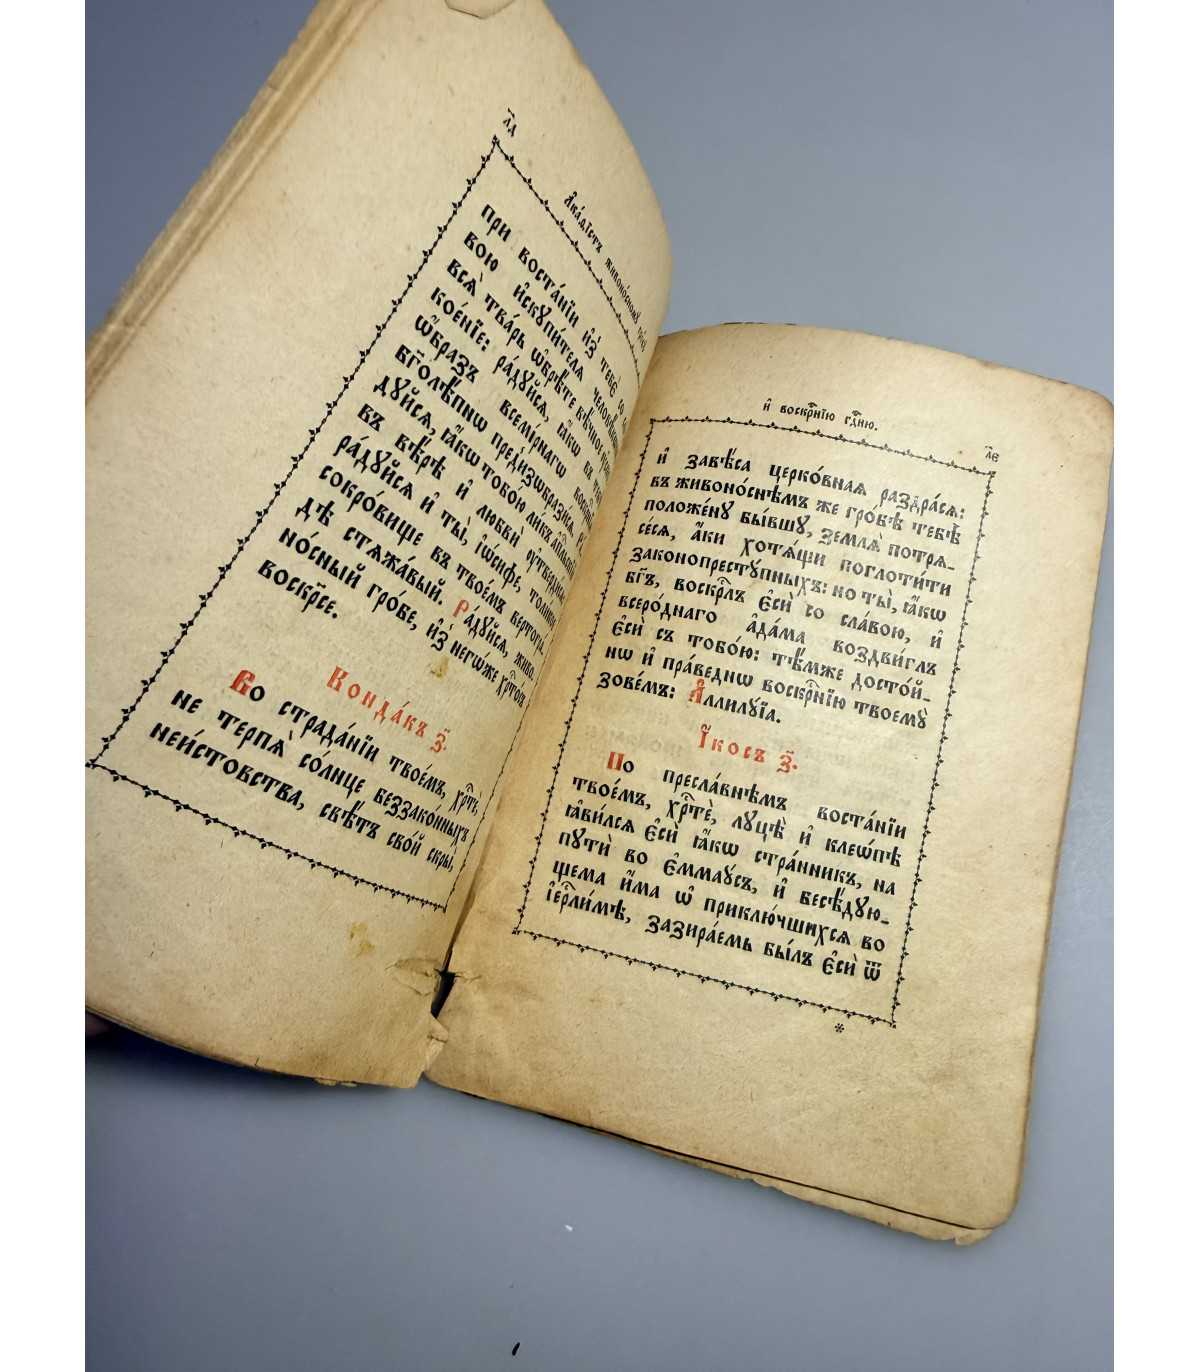 л҃д
А҆ка́ѳістъ живоно́сномꙋ гро́бꙋ
при воста́нїи и҆з̾ тебє̀ со
вою и҆скꙋпи́телѧ человѣ́
всѧ̀ тва́рь ѡ҆брѣ́те вѣ́чное
кое́нїе: ра́дꙋйсѧ, ꙗ҆́кѡ въ
ѡ҆́бразъ всемі́рнагѡ
бг҃олѣ́пнѡ пред̾изѡбрази́сѧ.
дꙋйсѧ, ꙗ҆́кѡ тобо́ю ли́къ а҆пⷭ҇льскїй
въ вѣ́рѣ и҆ любвѝ ᲂу҆твердѝсѧ.
ра́дꙋйсѧ и҆ ты̀, і҆ѡ́сифе, толи́кое
сокро́вище въ твое́мъ вертогра́
дѣ стѧжа́вый. Ра́дꙋйсѧ, живо-
но́сный гро́бе, и҆з̾ негѡ́же хрⷭ҇то́съ
воскр҃се.
Конда́къ з҃.
Во страда́нїи твое́мъ, хрⷭ҇тѐ,
не терпѧ̀ со́лнце беззако́нныхъ
неи́стовства, свѣ́тъ сво́й скры̀,
и҆ воскрⷭ҇нїю гдⷭ҇ню.
л҃є
и҆ завѣ́са церко́внаѧ раздра́сѧ:
въ живоно́снѣмъ же гро́бѣ тебѣ̀
положе́нꙋ бы́вшꙋ, землѧ̀ потрѧ-
се́сѧ, а҆́ки хотѧ́щи поглоти́ти
законопрестꙋ́пныхъ: но ты̀, ꙗ҆́кѡ
бг҃ъ, воскрⷭ҇лъ є҆сѝ со сла́вою, и҆
всеро́днаго а҆да́ма воздви́глъ
є҆сѝ съ тобо́ю: тѣ́мже досто́й-
нѡ и҆ пра́веднѡ воскрⷭ҇нїю твоемꙋ̀
зове́мъ: А҆ллилꙋ́їа.
І҆́косъ з҃.
По пресла́внѣмъ воста́нїи
твое́мъ, хрⷭ҇тѐ, лꙋцѣ̀ и҆ клео́пѣ
ꙗ҆ви́лсѧ є҆сѝ ꙗ҆́кѡ стра́нникъ, на
пꙋтѝ во є҆ммаꙋ́съ, и҆ бесѣ́дꙋю-
щема и҆́ма ѡ҆ приклю́чшихсѧ во
і҆ерⷭ҇ли́мѣ, зазира́емь бы́лъ є҆сѝ ѿ
*